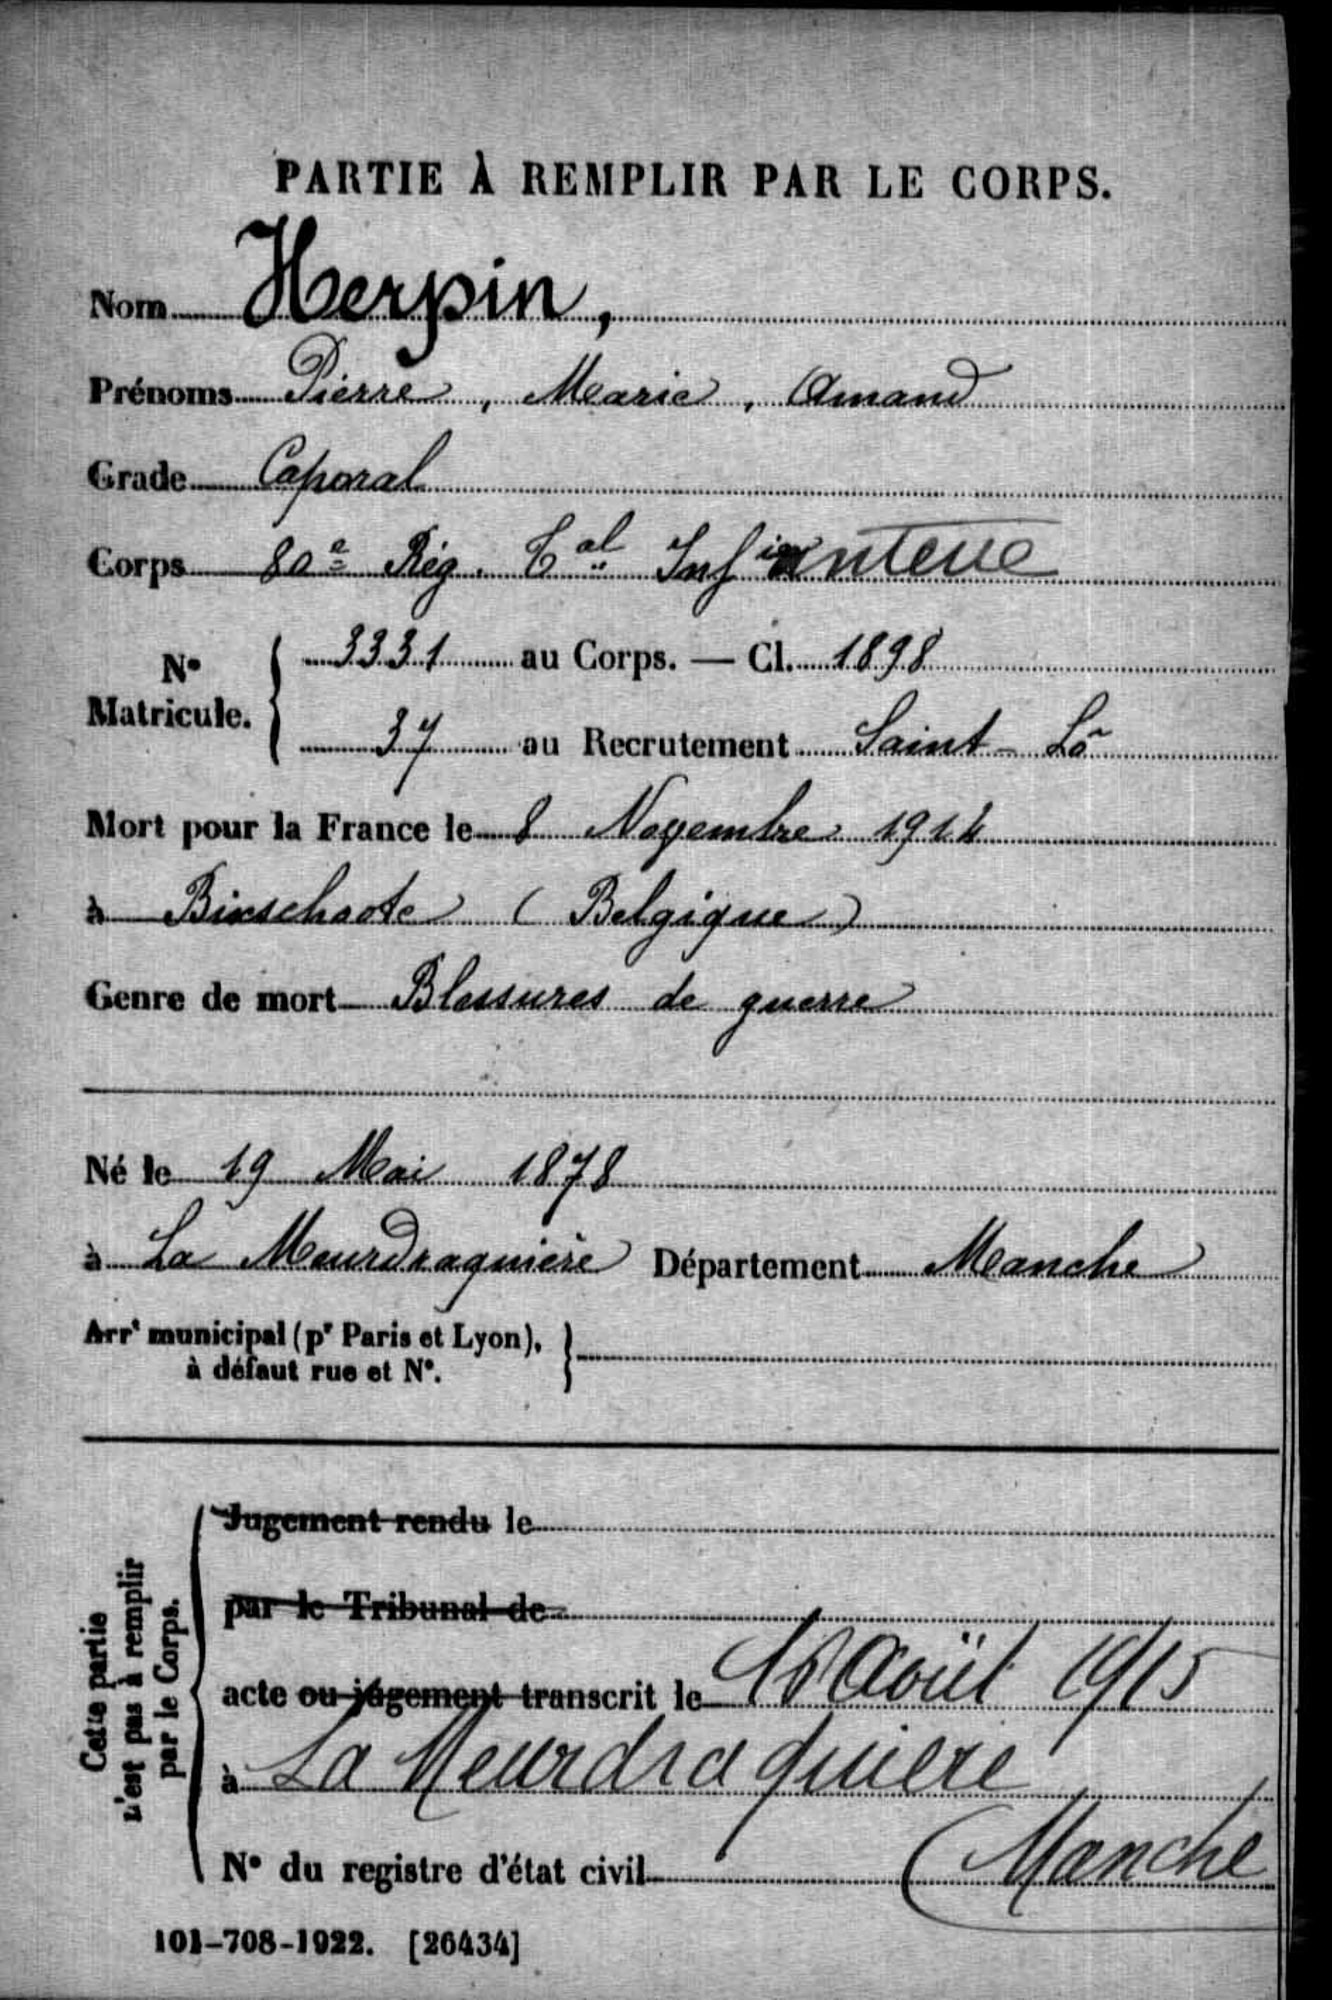 PARTIE À REMPLIR PAR LE CORPS.
Nom Herpin,
Prénoms Pierre, Marie, Amand
Grade Caporal
Corps 80e Rég. Tal Infanterie
N° Matricule. { 3331 au Corps. — Cl. 1898
37 au Recrutement Saint-Lô
Mort pour la France le 8 Novembre 1914
à Bixschoote (Belgique)
Genre de mort Blessures de guerre
Né le 19 Mai 1878
à La Meurdraquière Département Manche
Arrt municipal (pr Paris et Lyon),
à défaut rue et N°.
Cette partie
n'est pas à remplir
par le Corps.
Jugement rendu le
par le Tribunal de
acte ou jugement transcrit le Août 1915
à La Meurdraquière
N° du registre d'état civil (Manche
101-708-1922. [26434]